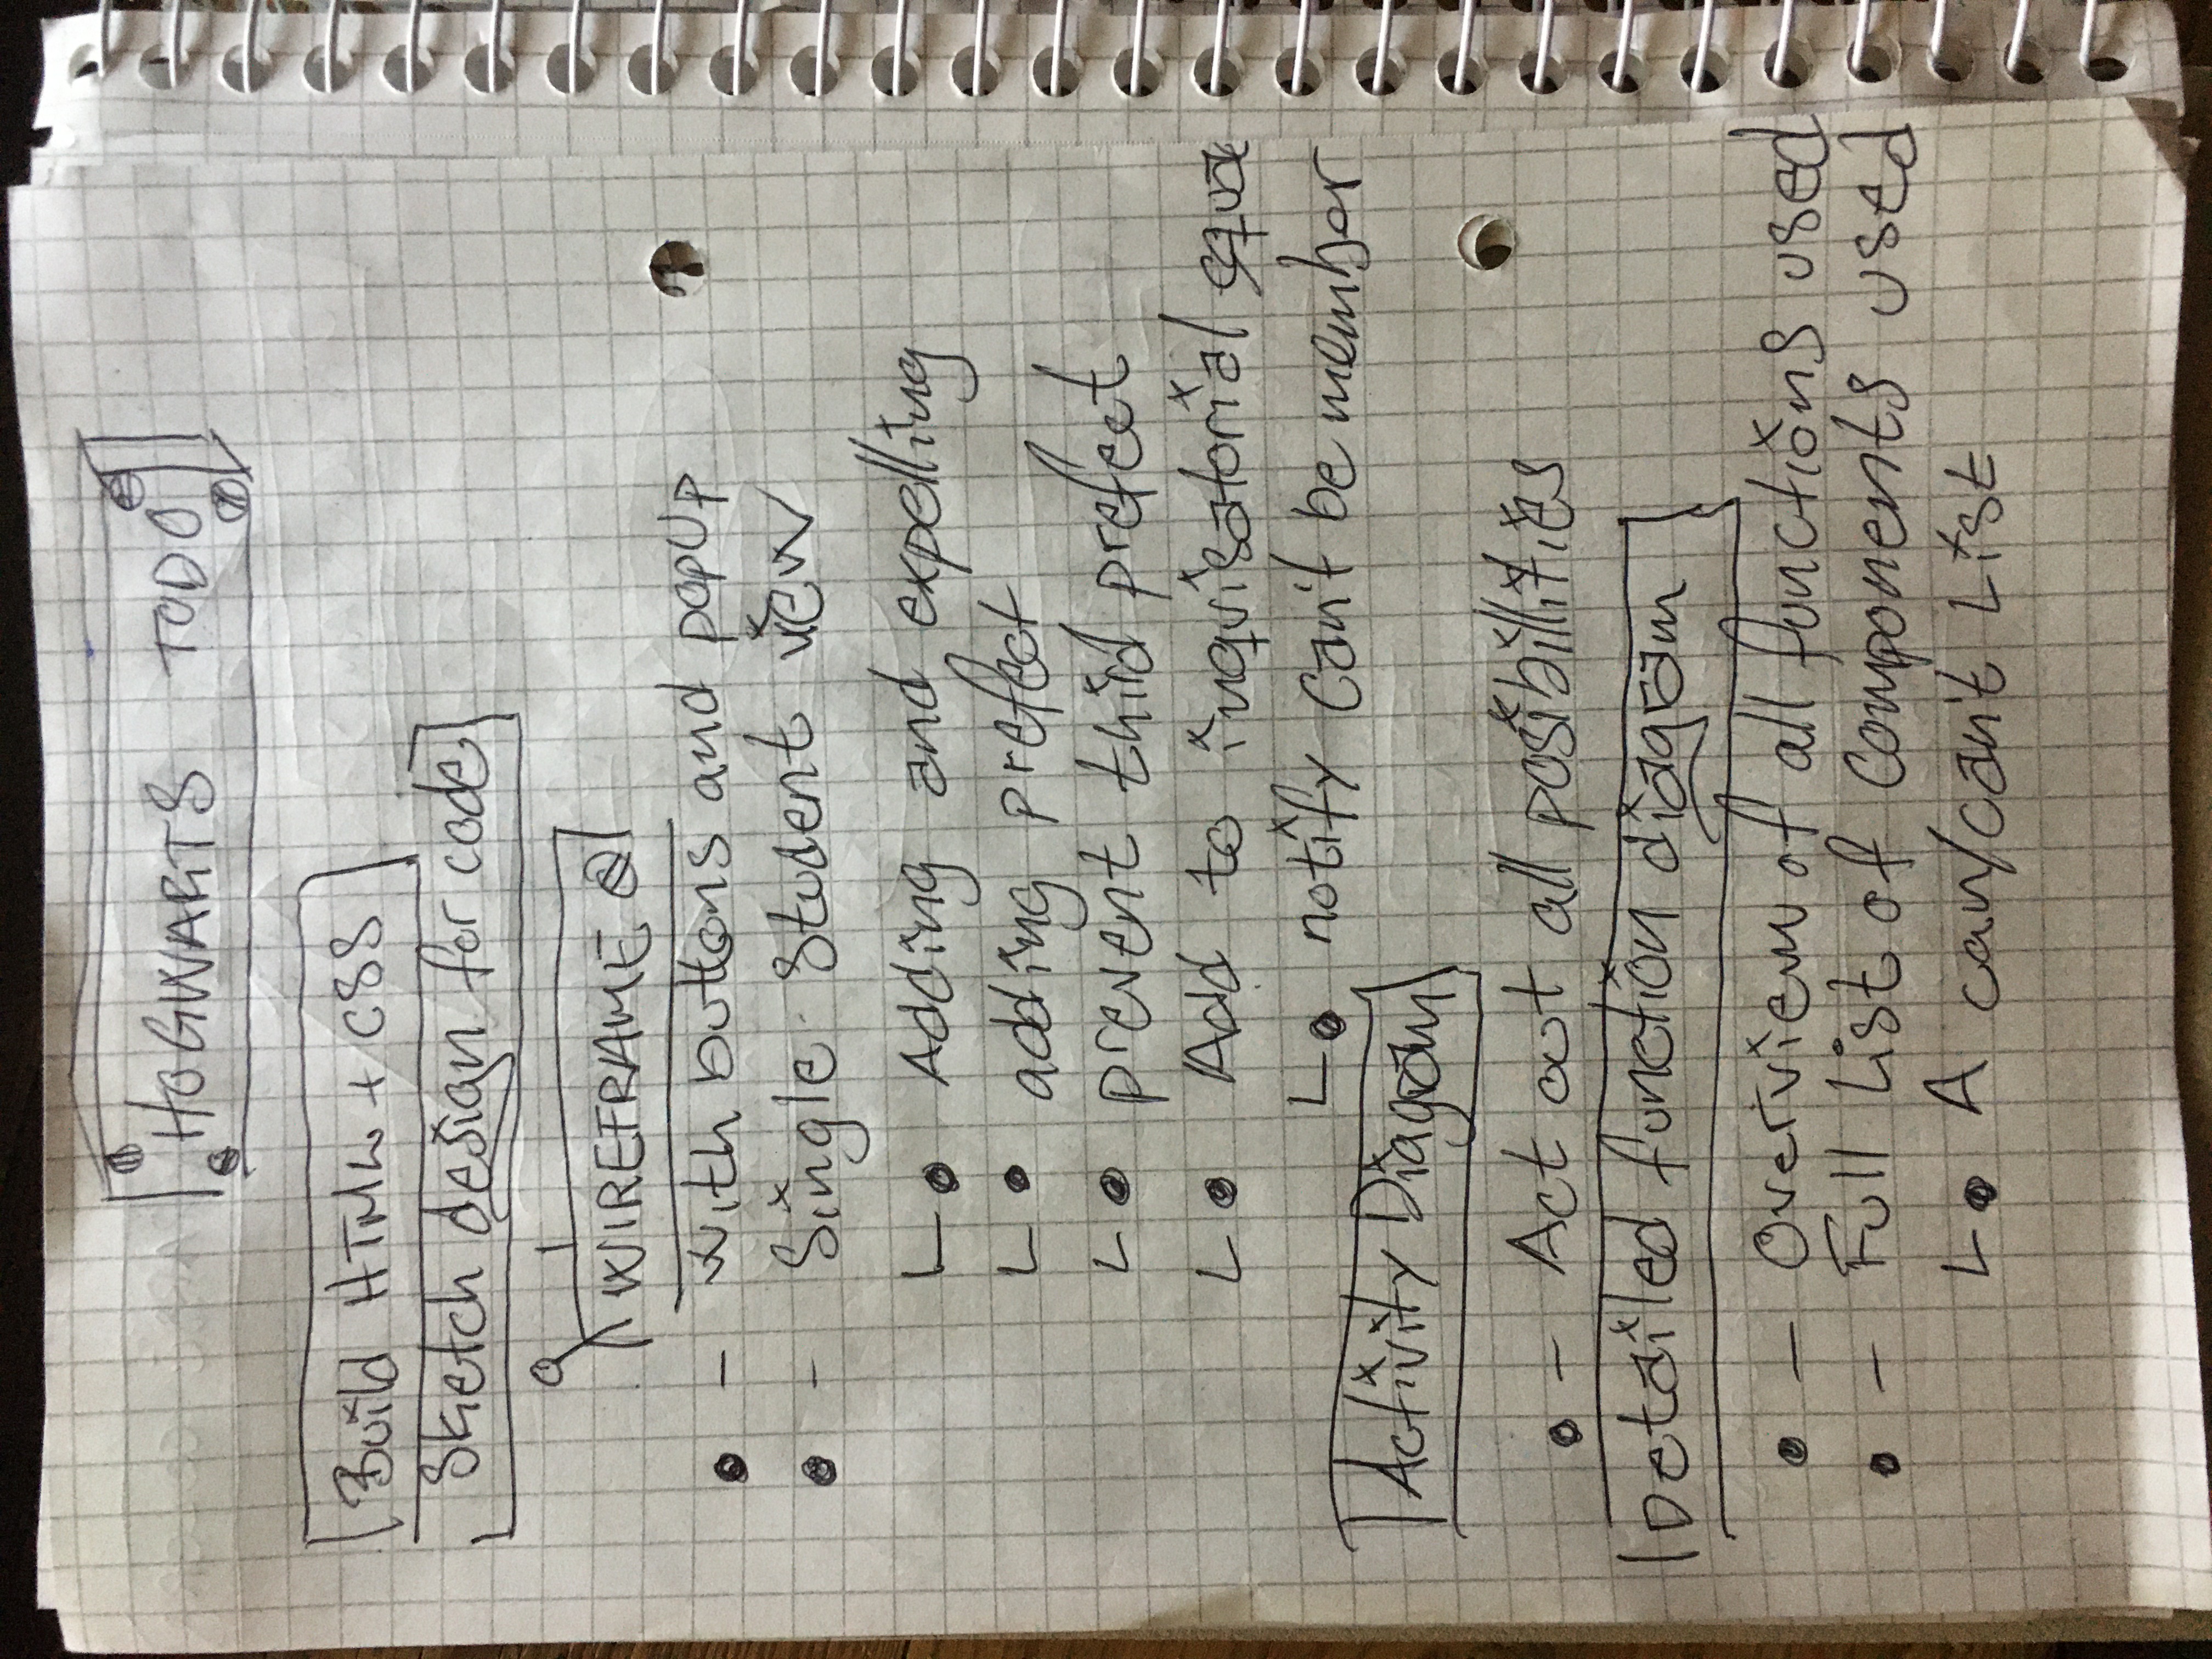 HOGWARTS TODO
Build HTML + CSS
Sketch design for code
WIREFRAME
- with buttons and popup
- Single Student view
L Adding and expelling
L adding prefect
L prevent third prefect
L Add to inquisatorial squa
L notify can't be member
Activity Diagram
- Act out all posibillities
Detailed function diagram
- Overview of all functions used
- Full List of components used
L A can/can't List